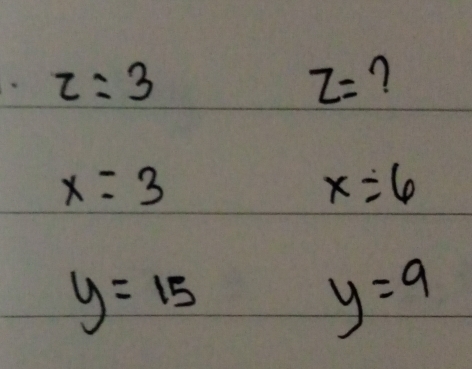 z = 3 z = ?
x = 3 x = 6
y = 15 y = 9